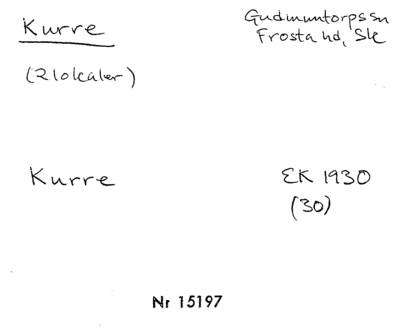 Kurre
Gudmuntorps sn
Frosta hd, Sk
(2 lokaler)
Kurre
EK 1930
(30)
Nr 15197